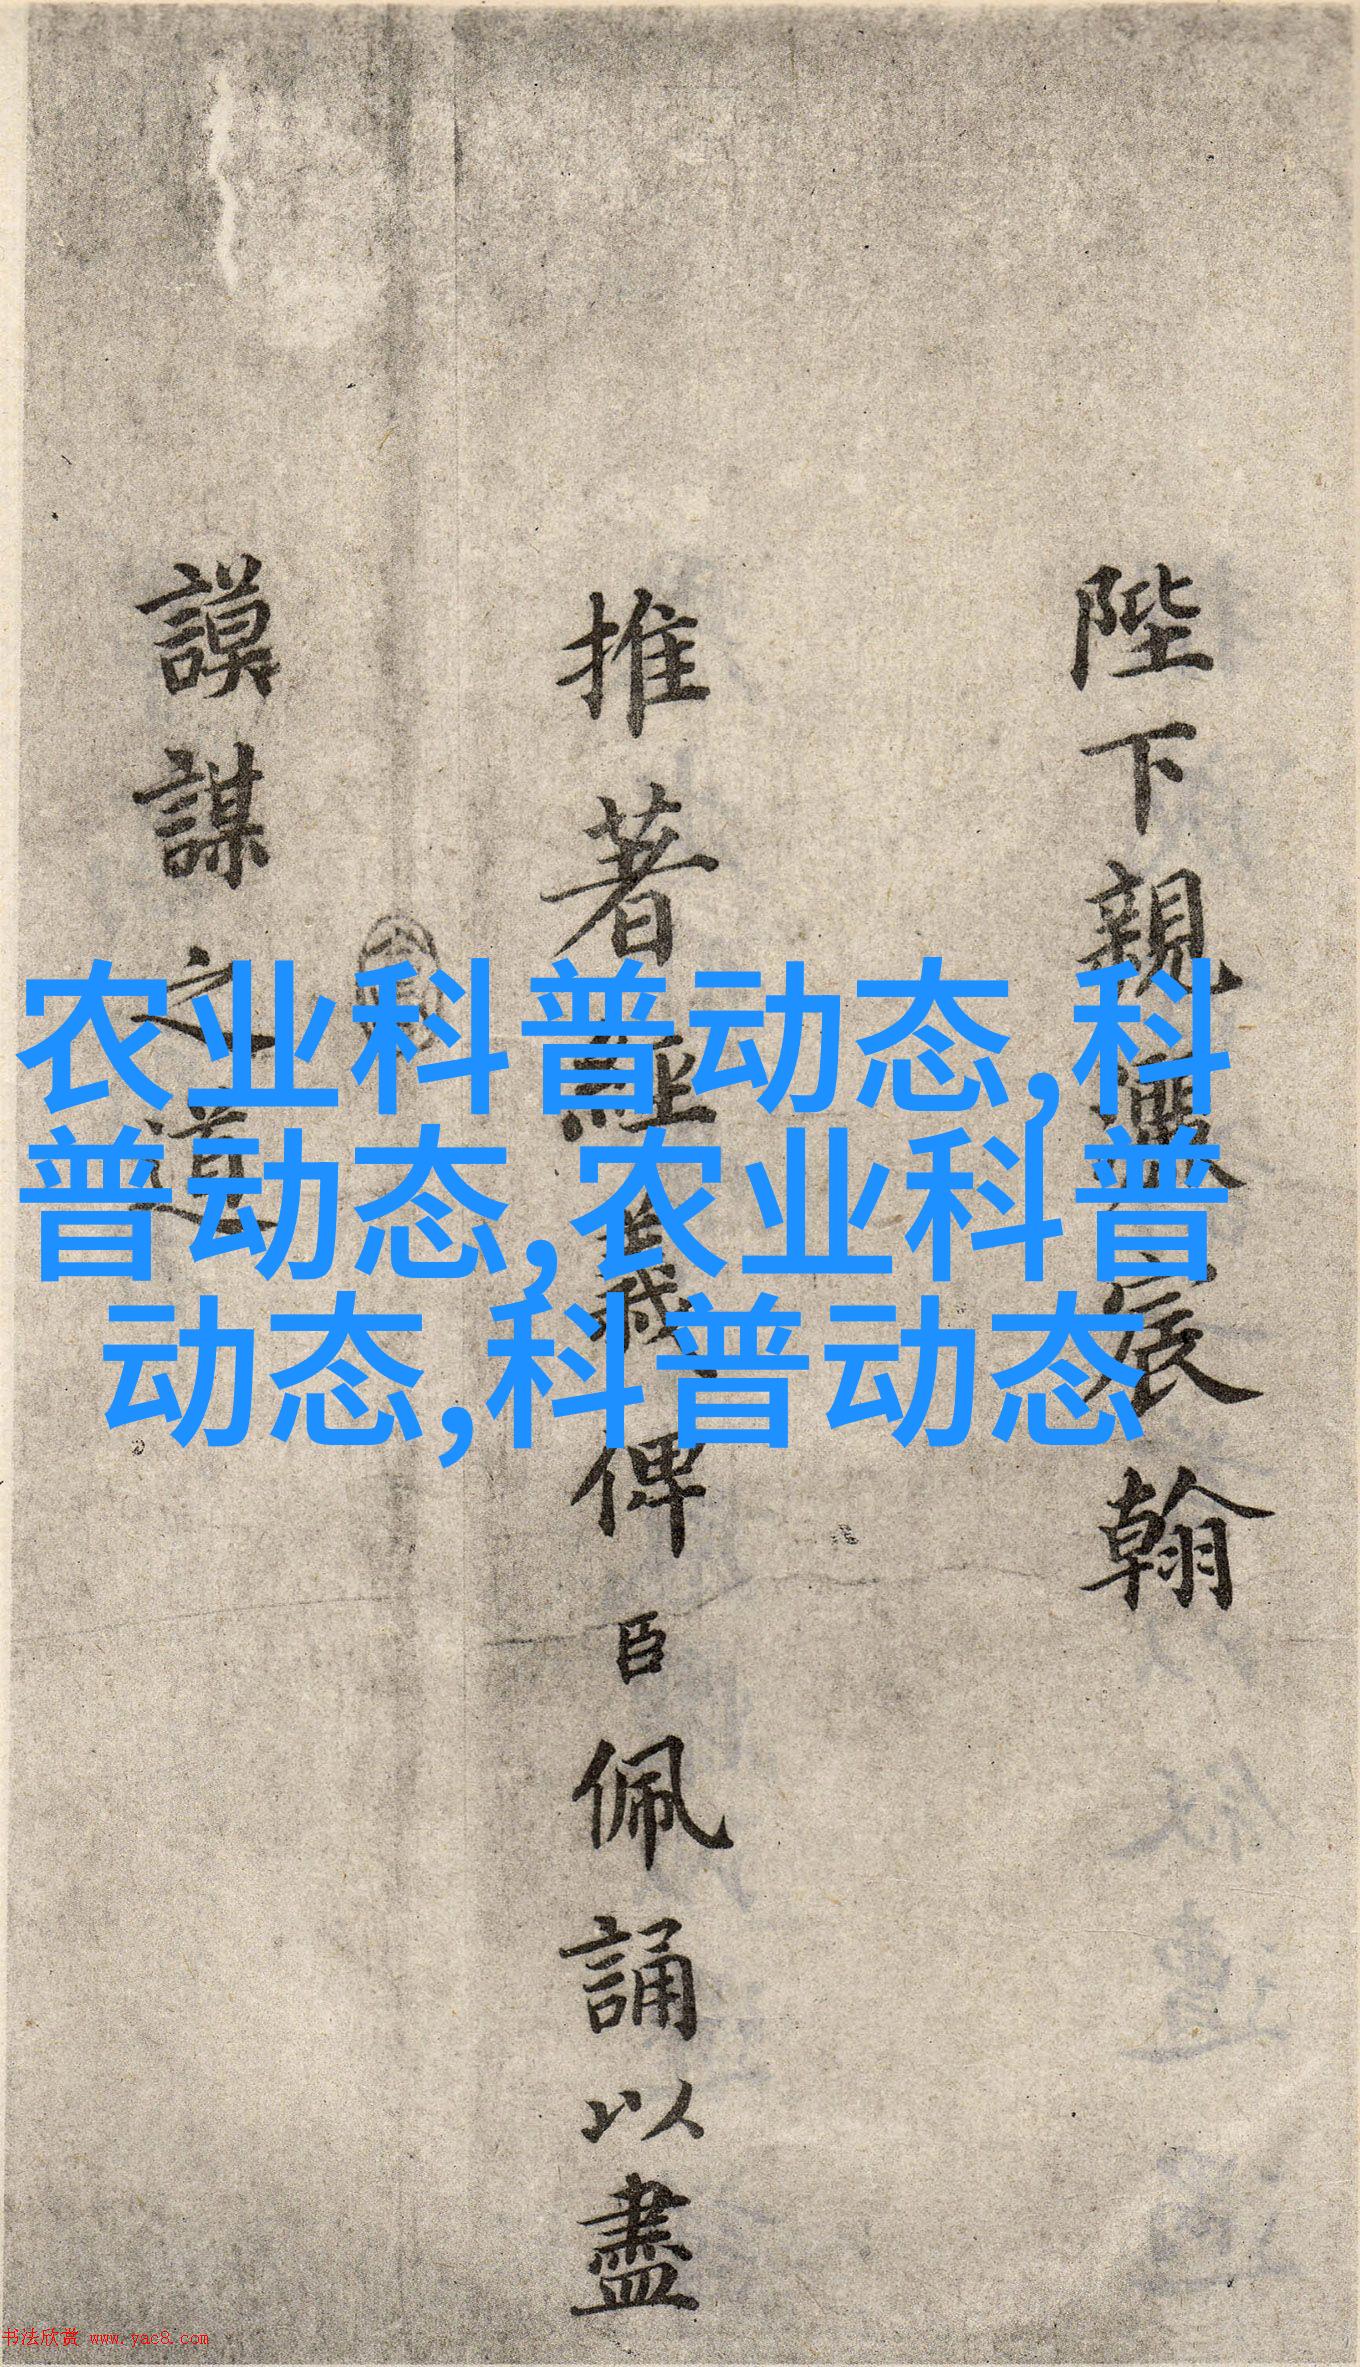 陛下親灑宸翰
推著經義俾臣佩誦以盡
謨謀之道
农业科普动态,科
普动态,农业科普
动态,科普动态
书法欣赏 www.yac8.com